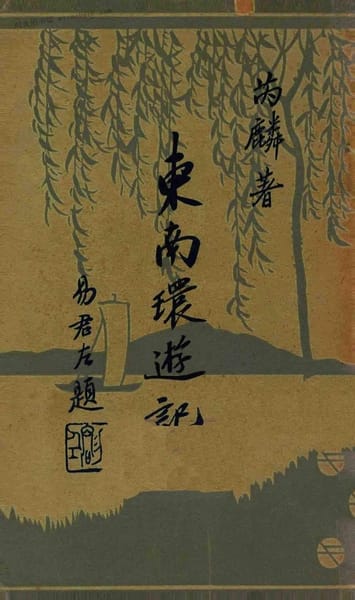 芮麟著
東南環遊記
易君左題